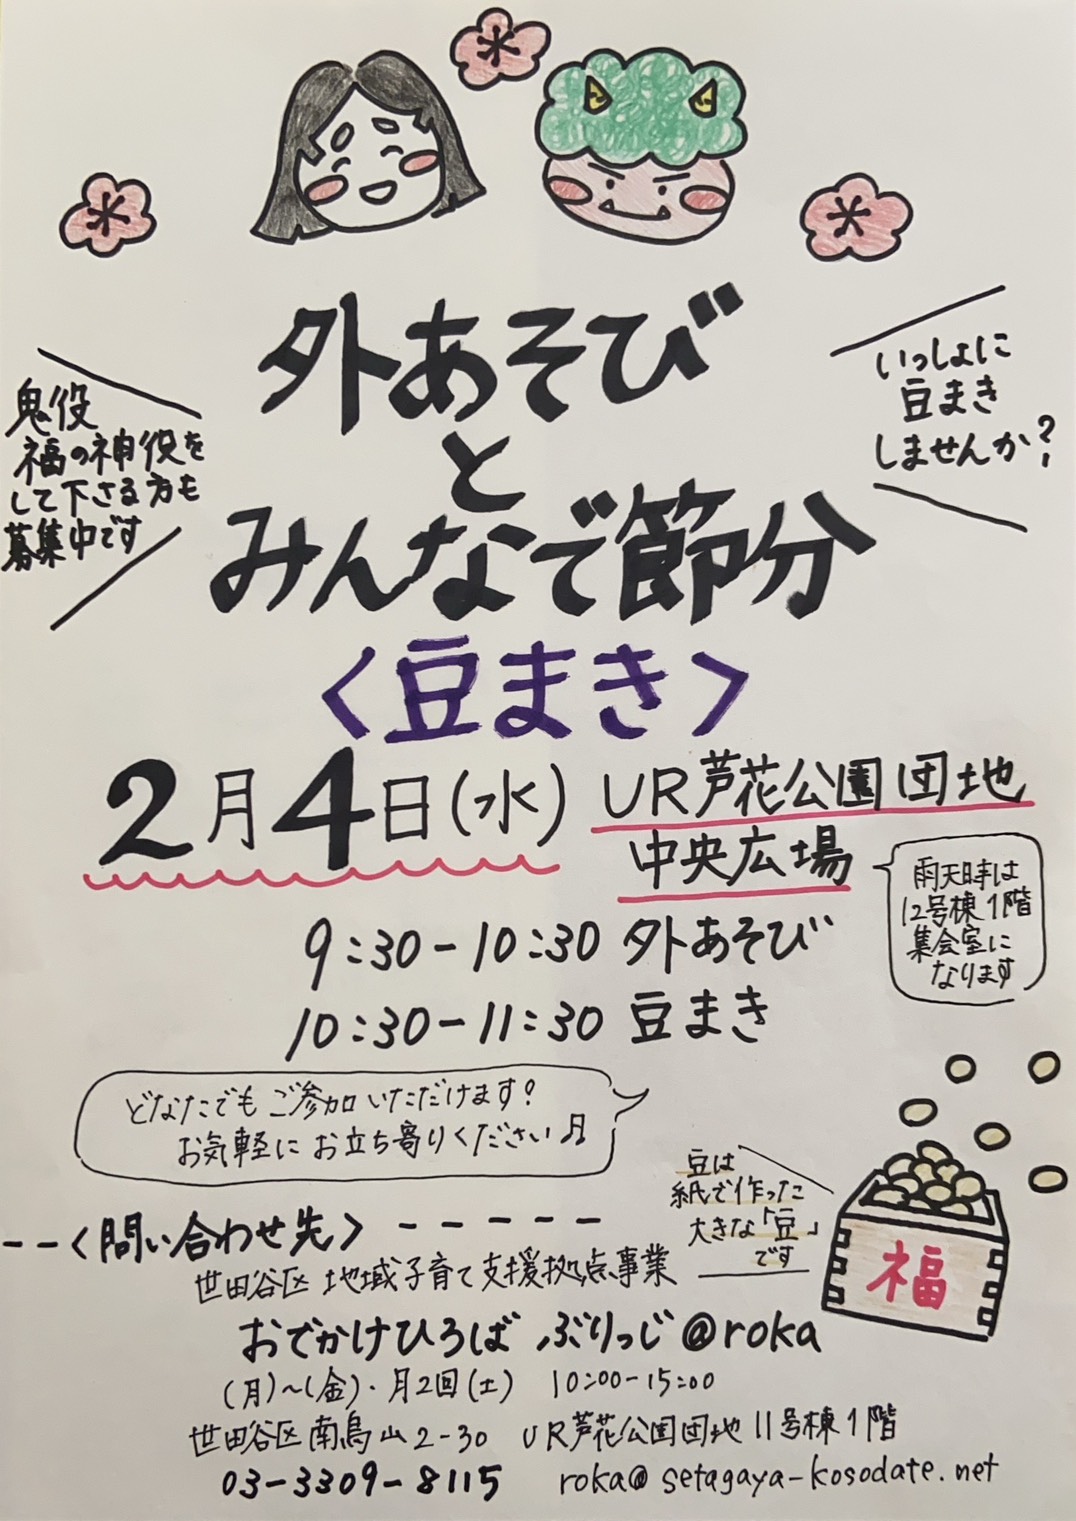 外あそび
と
みんなで節分
<豆まき>
鬼役
福の神役を
して下さる方も
募集中です
いっしょに
豆まき
しませんか?
2月4日(水) UR芦花公園団地
中央広場
雨天時は
12号棟1階
集会室に
なります
9:30-10:30 外あそび
10:30-11:30 豆まき
どなたでもご参加いただけます?
お気軽にお立ち寄りください♬
豆は
紙で作った
大きな「豆」
です
福
--<問い合わせ先>-----
世田谷区 地域子育て支援拠点事業
おでかけひろば ぶりっじ@roka
(月)~(金)・月2回(土) 10:00-15:00
世田谷区南烏山2-30 UR芦花公園団地11号棟1階
03-3309-8115 roka@setagaya-kosodate.net